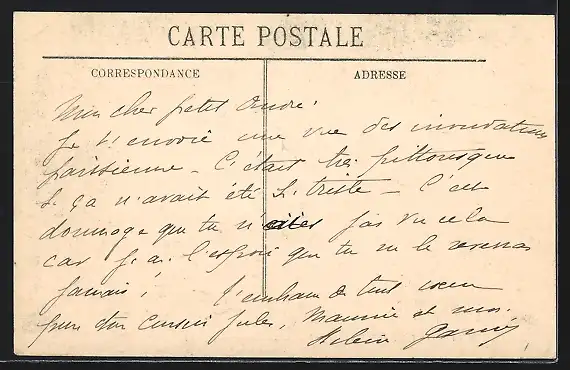 CARTE POSTALE
CORRESPONDANCE
ADRESSE
Mon cher petit André!
Je t'envoie une vue des inondations
parisienne - C'était très pittoresque
Si ça n'avait été si triste - C'est
dommage que tu n'aies pas vu cela
car j'ai l'espoir que tu ne le reverras
jamais! J'embrasse de tout coeur
pour ton cousin Jules, Maman et moi.
Helene